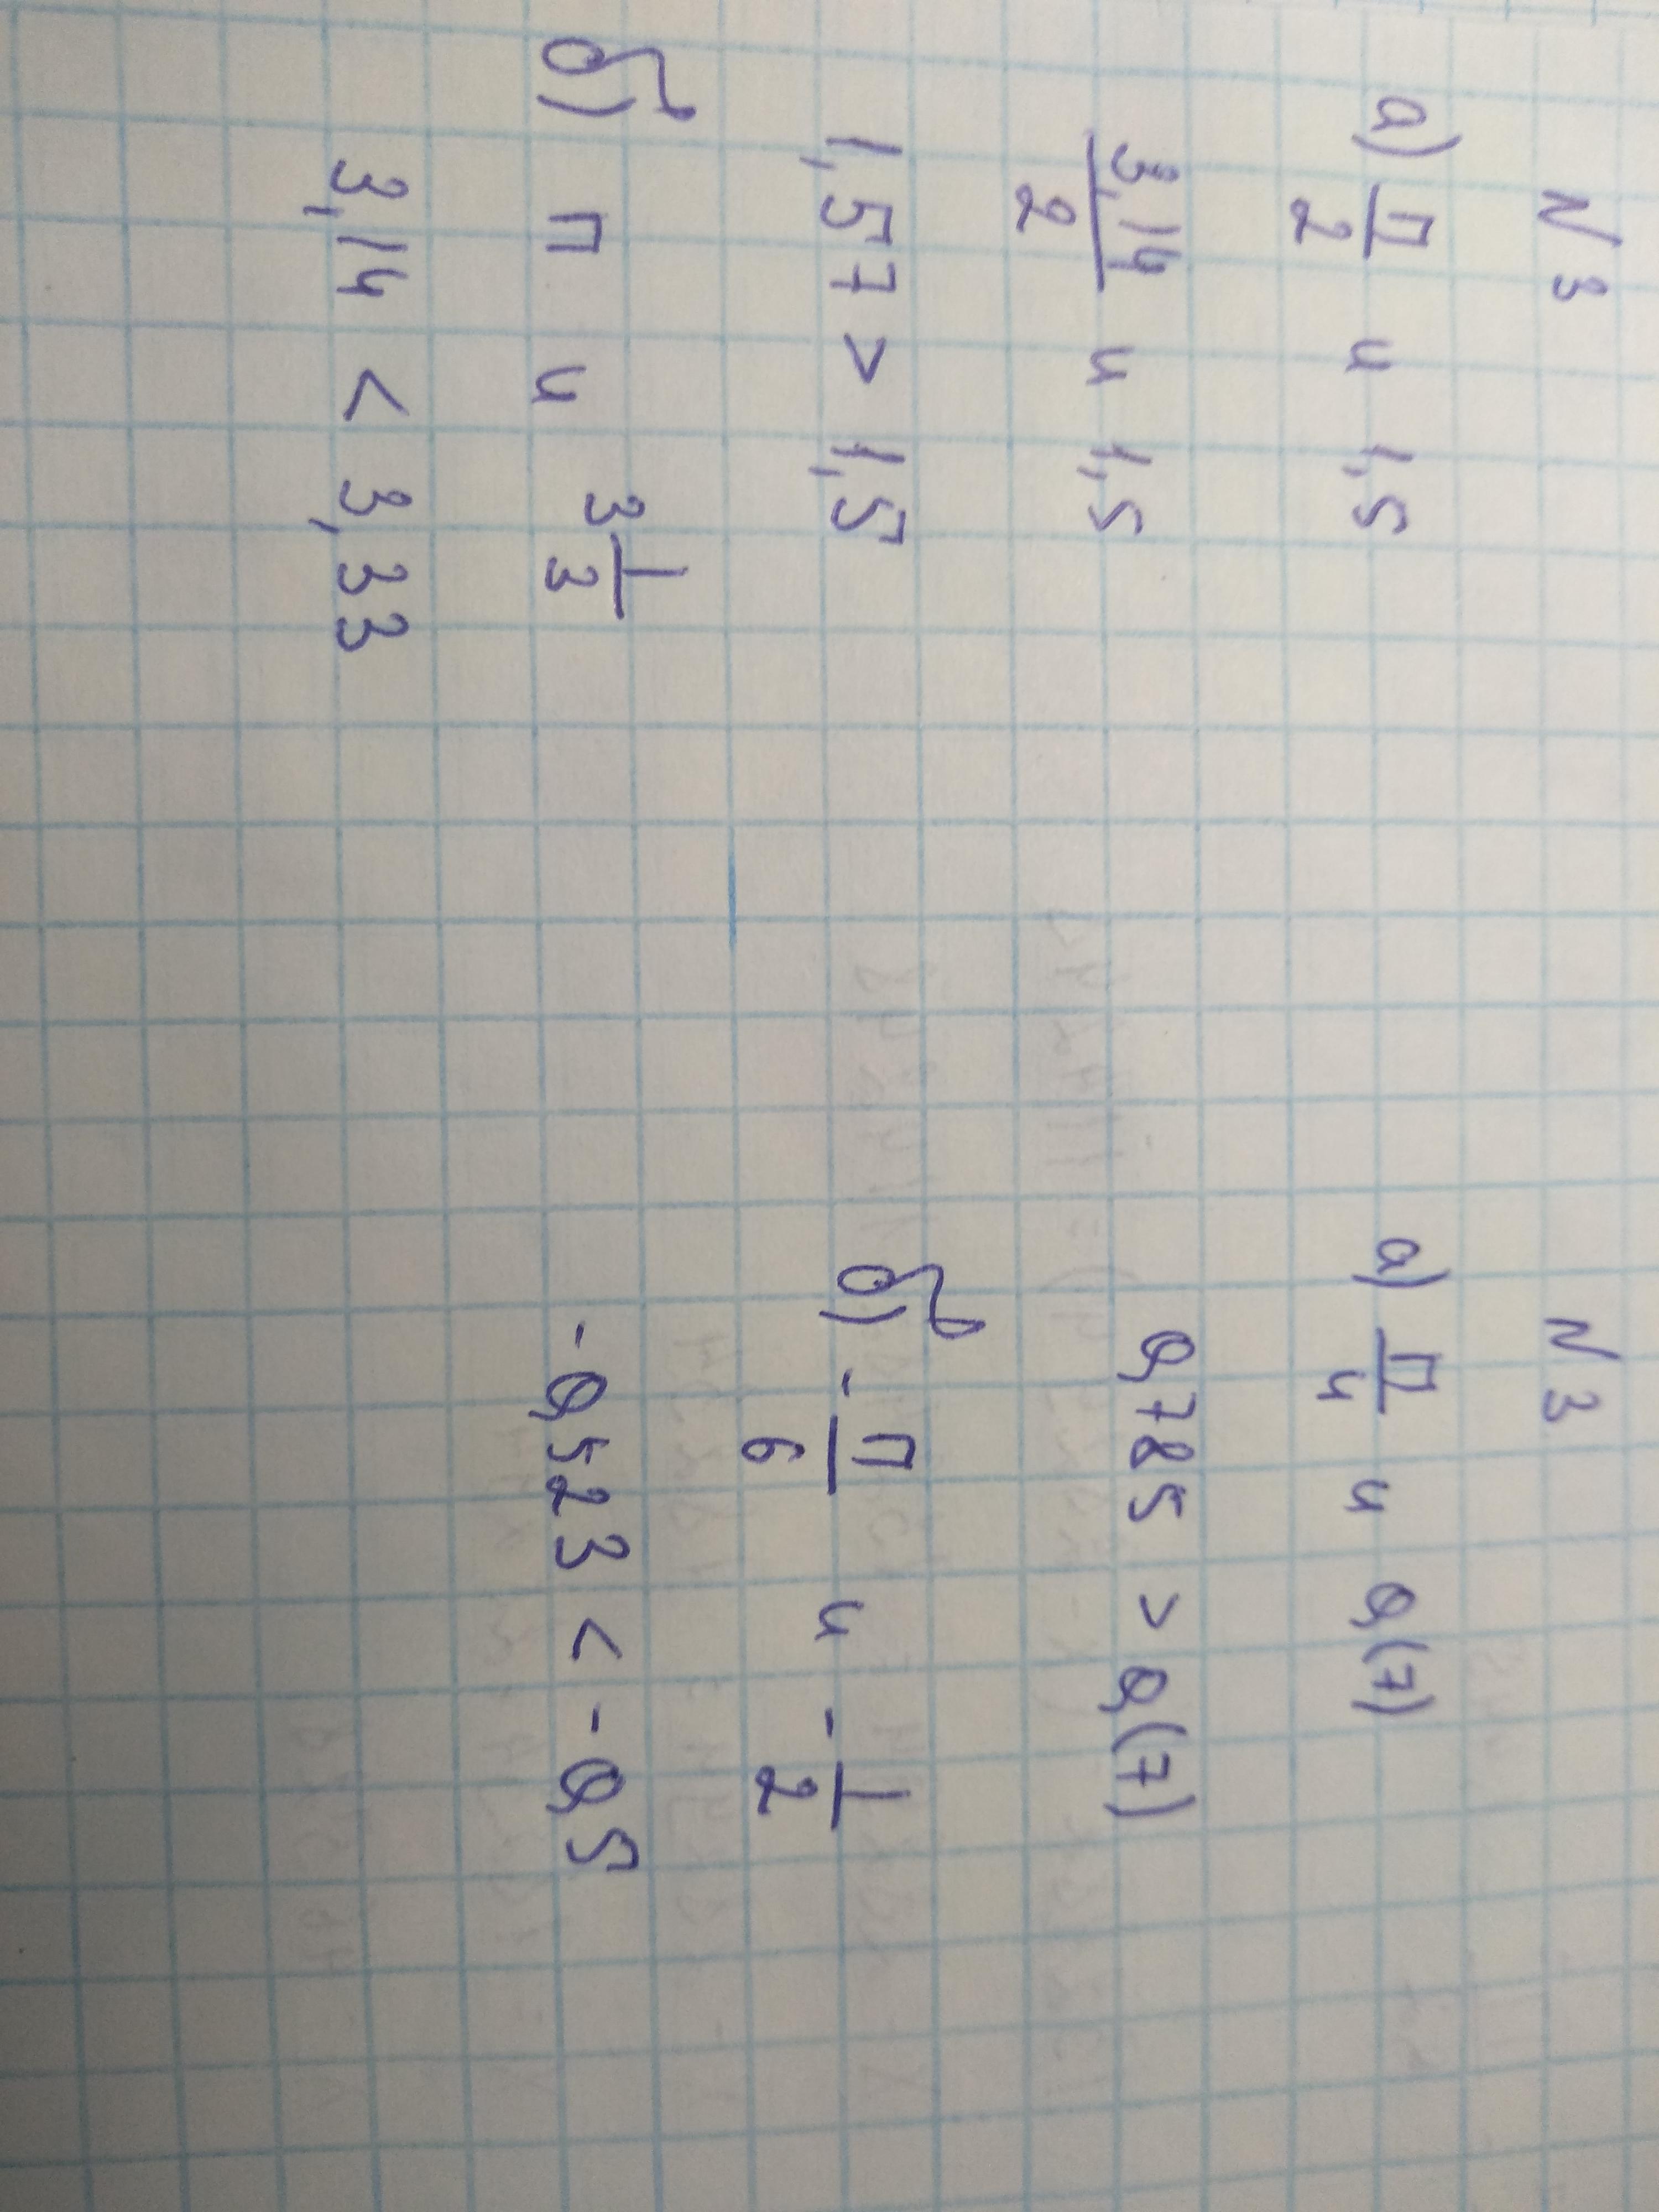 N 3
а) π/2 и 1,5
3,14/2 и 1,5
1,57 > 1,5
б) π и 3 1/3
3,14 < 3,33
N 3
а) π/4 и 0,(7)
0,785 > 0,(7)
б) - π/6 и - 1/2
-0,523 < -0,5